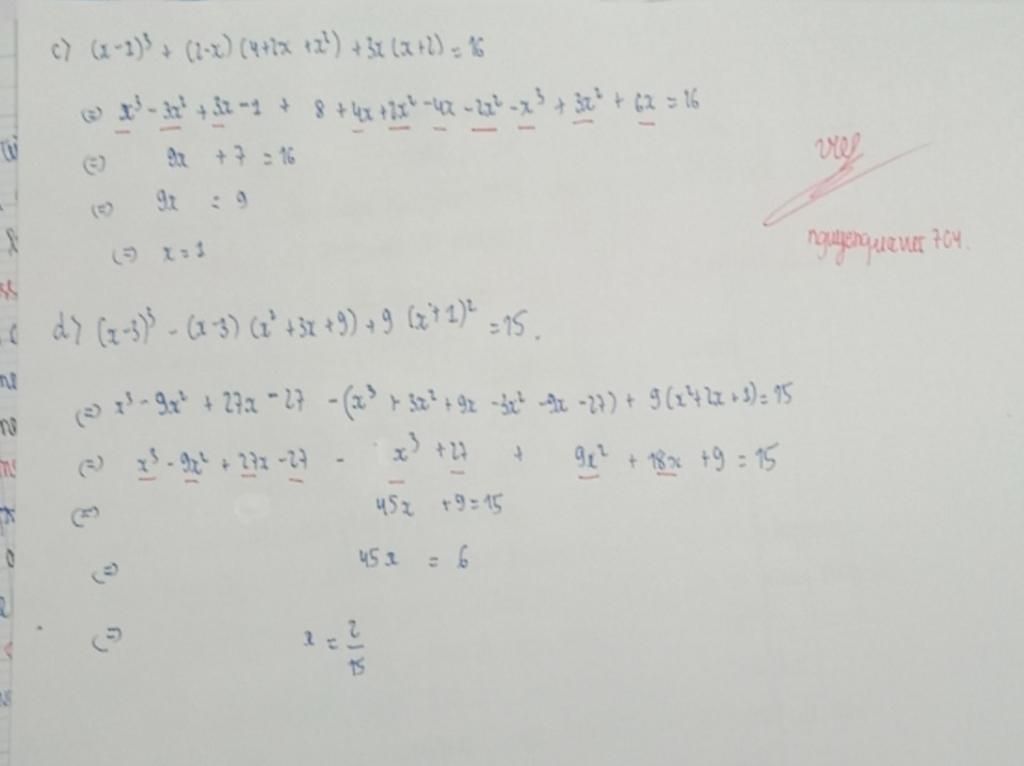 c) (x-1)³ + (2-x)(4+2x+x²) + 3x(x+2) = 16
(=) x³ - 3x² + 3x - 1 + 8 + 4x + 2x² - 4x - 2x² - x³ + 3x² + 6x = 16
(=) 9x + 7 = 16
(=) 9x = 9
(=) x = 1
nguyenquaner 704.
d) (x-3)³ - (x-3)(x² + 3x + 9) + 9(x+1)² = 15.
(=) x³ - 9x² + 27x - 27 - (x³ + 3x² + 9x - 3x² - 9x - 27) + 9(x² + 2x + 1) = 15
(=) x³ - 9x² + 27x - 27 - x³ + 27 + 9x² + 18x + 9 = 15
(=) 45x + 9 = 15
(=) 45x = 6
(=) x = 2/15